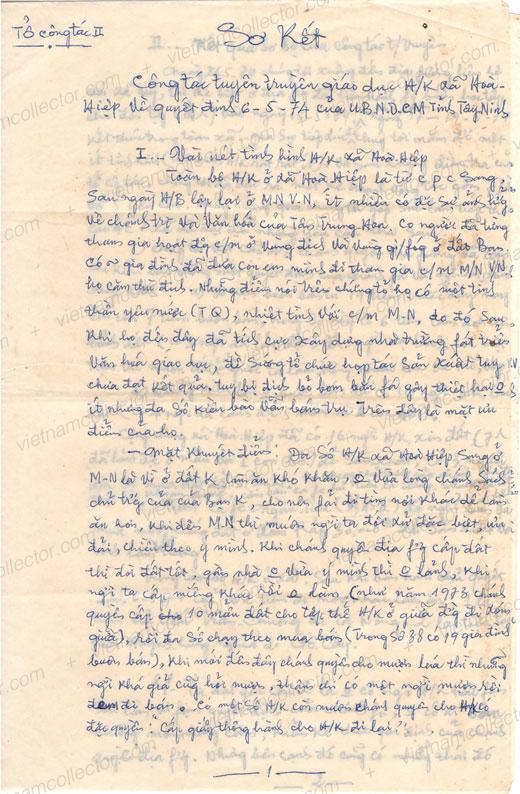 Tổ Công tác II
Sơ Kết
Công tác tuyên truyền giáo dục H/K xã Hoà-
Hiệp, Về quyết định 6-5-74 của U.B.N.D.C.M Tỉnh Tây Ninh
I... Vài nét tình hình H/K xã Hoà Hiệp
Toàn bộ H/K ở xã Hoà Hiệp là từ c p c sang,
Sau ngày H/B lập lại ở M.N V.N, ít nhiều có được sự ảnh hưởng
Về chánh trị Với Văn hoá của Tân Trung Hoa, Có người đã từng
tham gia hoạt động c/m ở Vùng địch Và Vùng g/fóg ở đất Bạn.
Có gia đình đã đưa con em mình đi tham gia c/m M/N V.N
họ căm thù địch. Những điểm nói trên chứng tỏ họ có một tinh
thần yêu nước (T Q), nhiệt tình Với c/m M.N, do đó Sau
Khi họ đến đây đã tích cực xây dựng nhà trường fát triển
Văn hoá giáo dục, đề xướng tổ chức hợp tác Sản Xuất tuy
chưa đạt kết quả. tuy bị địch bỏ bom bắn fá gây thiệt hại O
ít nhưng đa Số kiều bào Vẫn bám trụ. Trên đây là mặt ưu
điểm của họ.
— Mặt Khuyết điểm: Đa Số H/K xã Hoà Hiệp Sang ở
M-N là vì ở đất K làm ăn khó khăn, O vừa lòng chánh Sách
chủ trg của của Bạn K, cho nên fải đi tìm nơi Khác để làm
ăn hơn, Khi đến M.N thì muốn ngi ta đối xử đặc biệt, ưu
đãi, chiều theo ý mình. Khi chánh quyền địa fg cấp đất
thì đòi đất tốt, gần nhà O vừa ý mình thì O lãnh, Khi
ngi ta cấp miếng Khác rồi O làm, (như năm 1973 chánh
quyền cấp cho 10 mẩu đất cho tập thể H/K ở
giữa), rồi đa Số chạy theo mua bán (Trong Số 38 có 19 gia đình
buôn bán), Khi mới đến đây chánh quyền cho mượn lúa thì những
ngi Khá giả cũg hỏi mượn, thậm chí có một ngi mượn rồi
đem đi bán. Có một Số H/K còn muốn chánh quyền cho H/K có
đặc quyền: "Cấp giấy thông hành cho H/K đi lại".
1
vietnamcollector.com